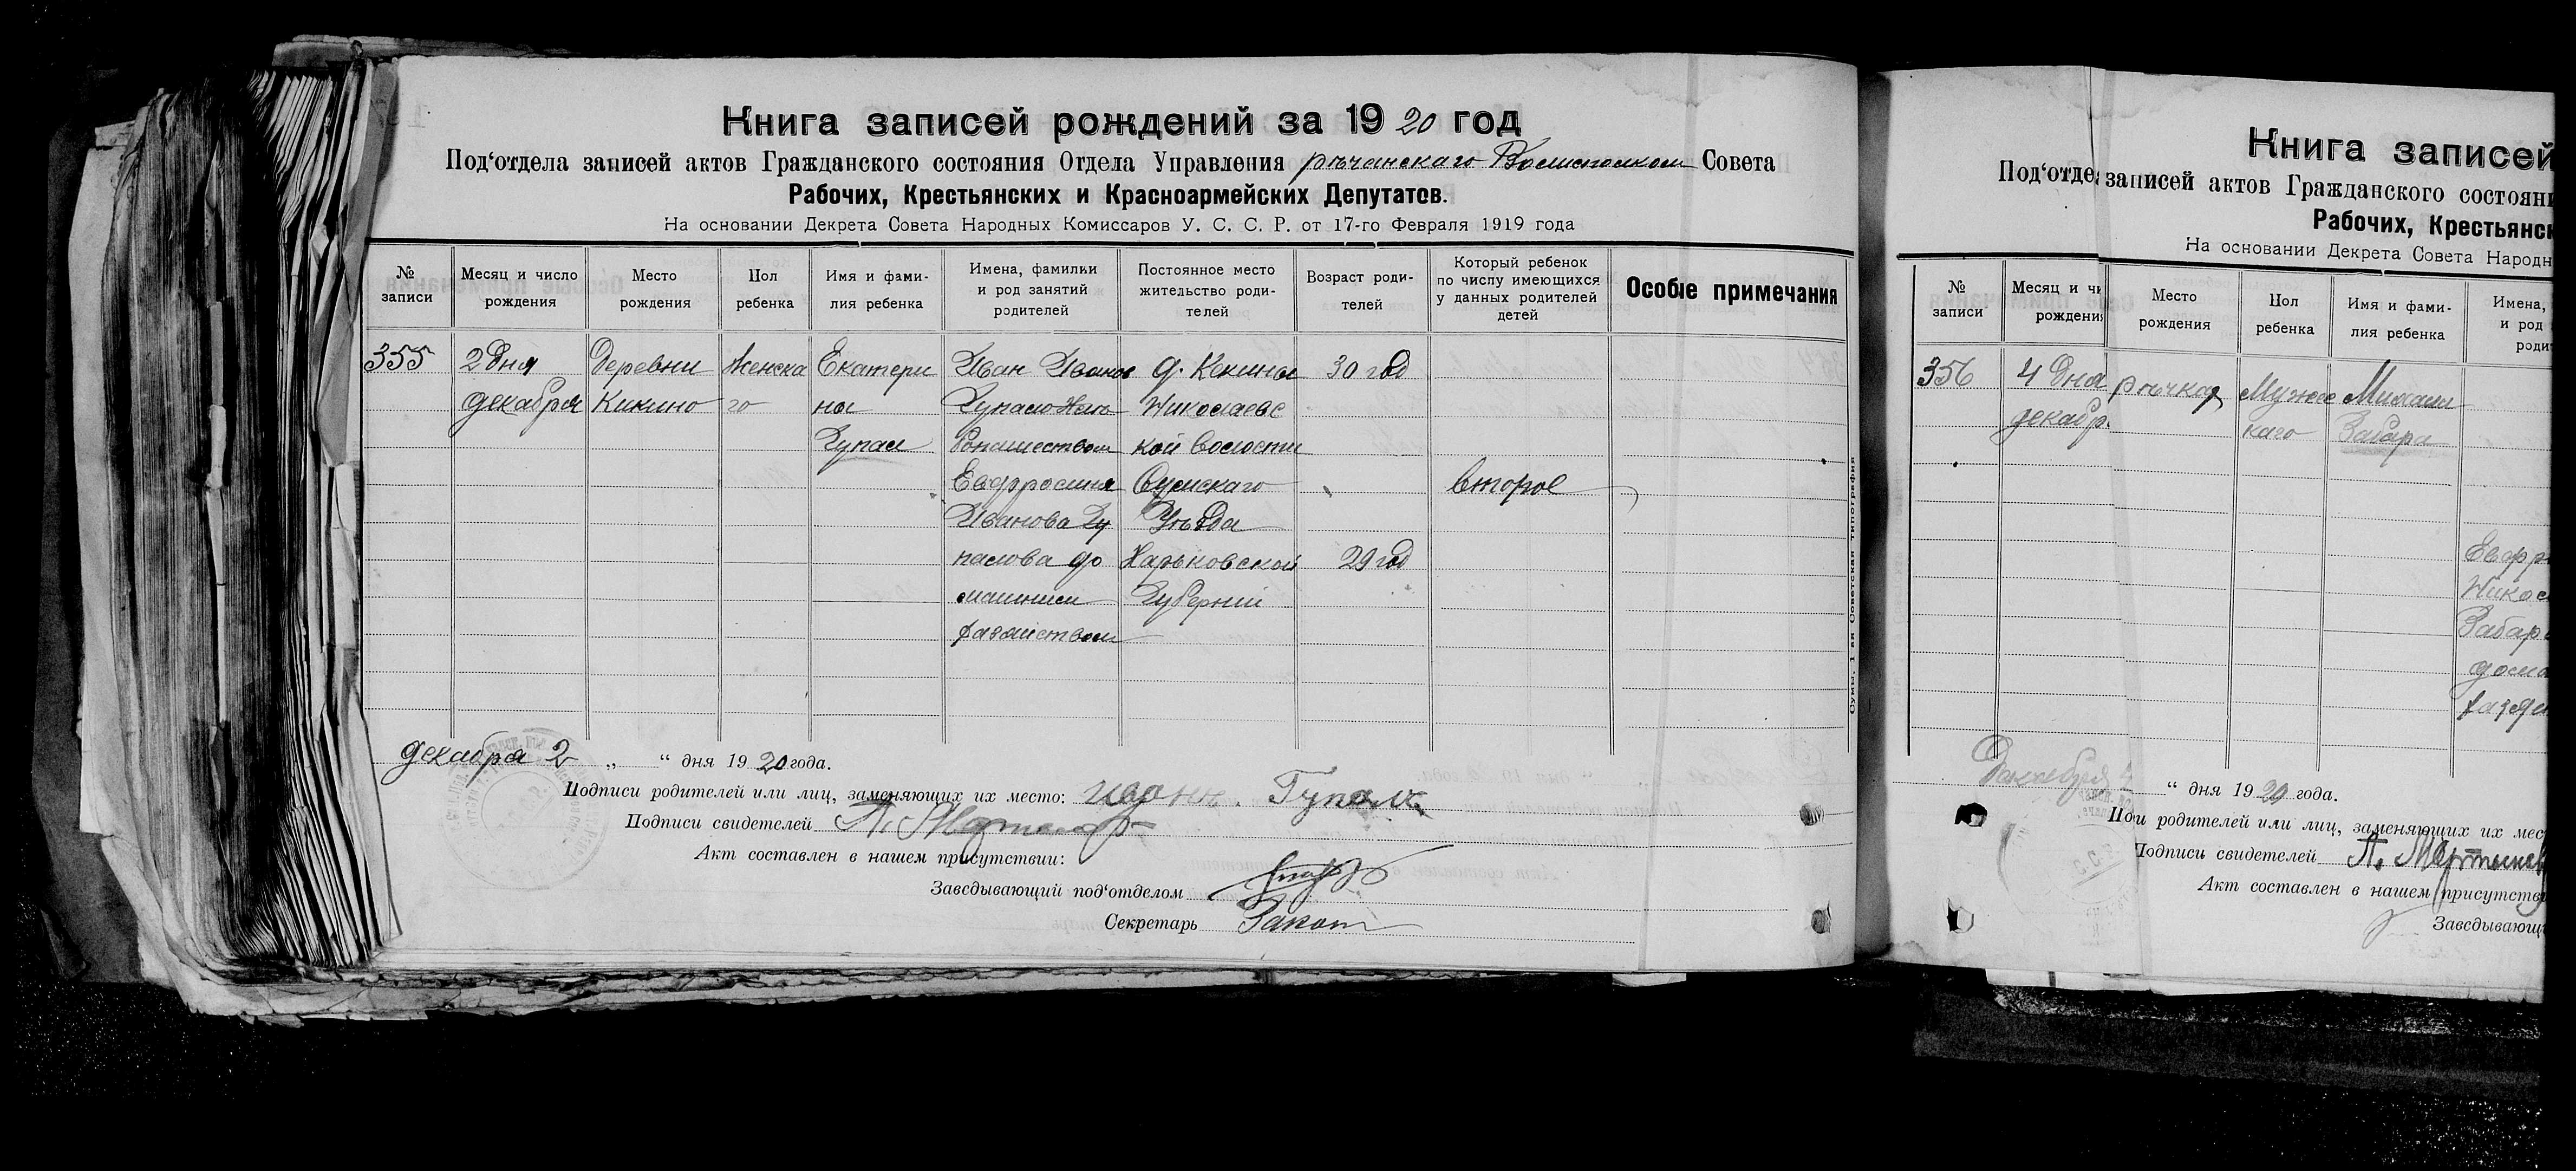 Книга записей рождений за 1920 год
Под‘отдела записей актов Гражданского состояния Отдела Управления рѣчанскаго Волисполком Совета
Рабочих, Крестьянских и Красноармейских Депутатов.
На основании Декрета Совета Народных Комиссаров У. С. С. Р. от 17-го Февраля 1919 года
№ записи
Месяц и число рождения
Место рождения
Пол ребенка
Имя и фами-
лия ребенка
Имена, фамилки
и род занятий
родителей
Постоянное место
жительство роди-
телей
Возраст роди-
телей
Который ребенок
по числу имеющихся
у данных родителей
детей
Особые примечания
355
2 Дня
декабря
Деревни
Кикино
Женска
го
Екатери
на
Гупал
Иван Иванов
Гупало
Евфросиния
Иванова Гу
палова до
машним
д. Кекина
Николаевс
кой Волости
Сумскаго
Уѣзда
Харьковской
Губернии
30 год
29 год
второе
декабря 2 „ “ дня 1920 года.
Подписи родителей или лиц, заменяющих их место: Иванъ. Гупалъ
Подписи свидетелей А.
Акт составлен в нашем присутствии:
Заведывающий под‘отделом
Секретарь
Сумы, 1-ая Советская типография
Книга записей
Под‘отде записей актов Гражданского состояни
Рабочих, Крестьянск
На основании Декрета Совета Народн
№ записи
Месяц и чи
рождени
Место рождения
Пол ребенка
Имя и фами-
лия ребенка
Имена,
и род
родит
356
4 Дня
декабр.
рѣчках
Мужс
каго
Михаил
Забара
Евфр
Никол
Забар
дома
Декабря 4 “ дня 1920 года.
Под и родителей или лиц, заменяющих их мес
Подписи свидетелей А.
Акт составлен в нашем присутстви
Заведывающи